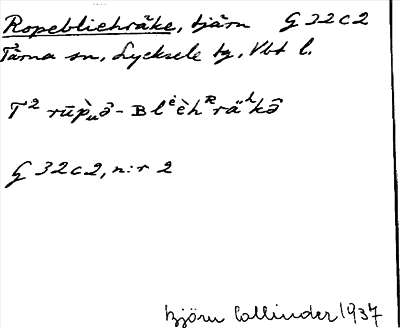 Ropebliehråke, tjärn G 32 c 2
Tärna sn, Lycksele tg, Vbt l.
T² rūp̀ᵤə̂ - B lⁱèhᴿräʰkə̂
G 32 c 2, n:r 2
Björn Collinder 1937